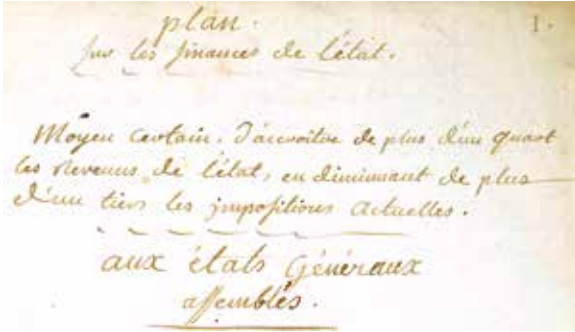 plan.
1.
sur les finances de l'état.
Moyen certain. d'accroitre de plus d'un quart
les Revenus de l'état, en diminuant de plus
d'un tiers les impositions actuelles.
aux états Généraux
assemblés.